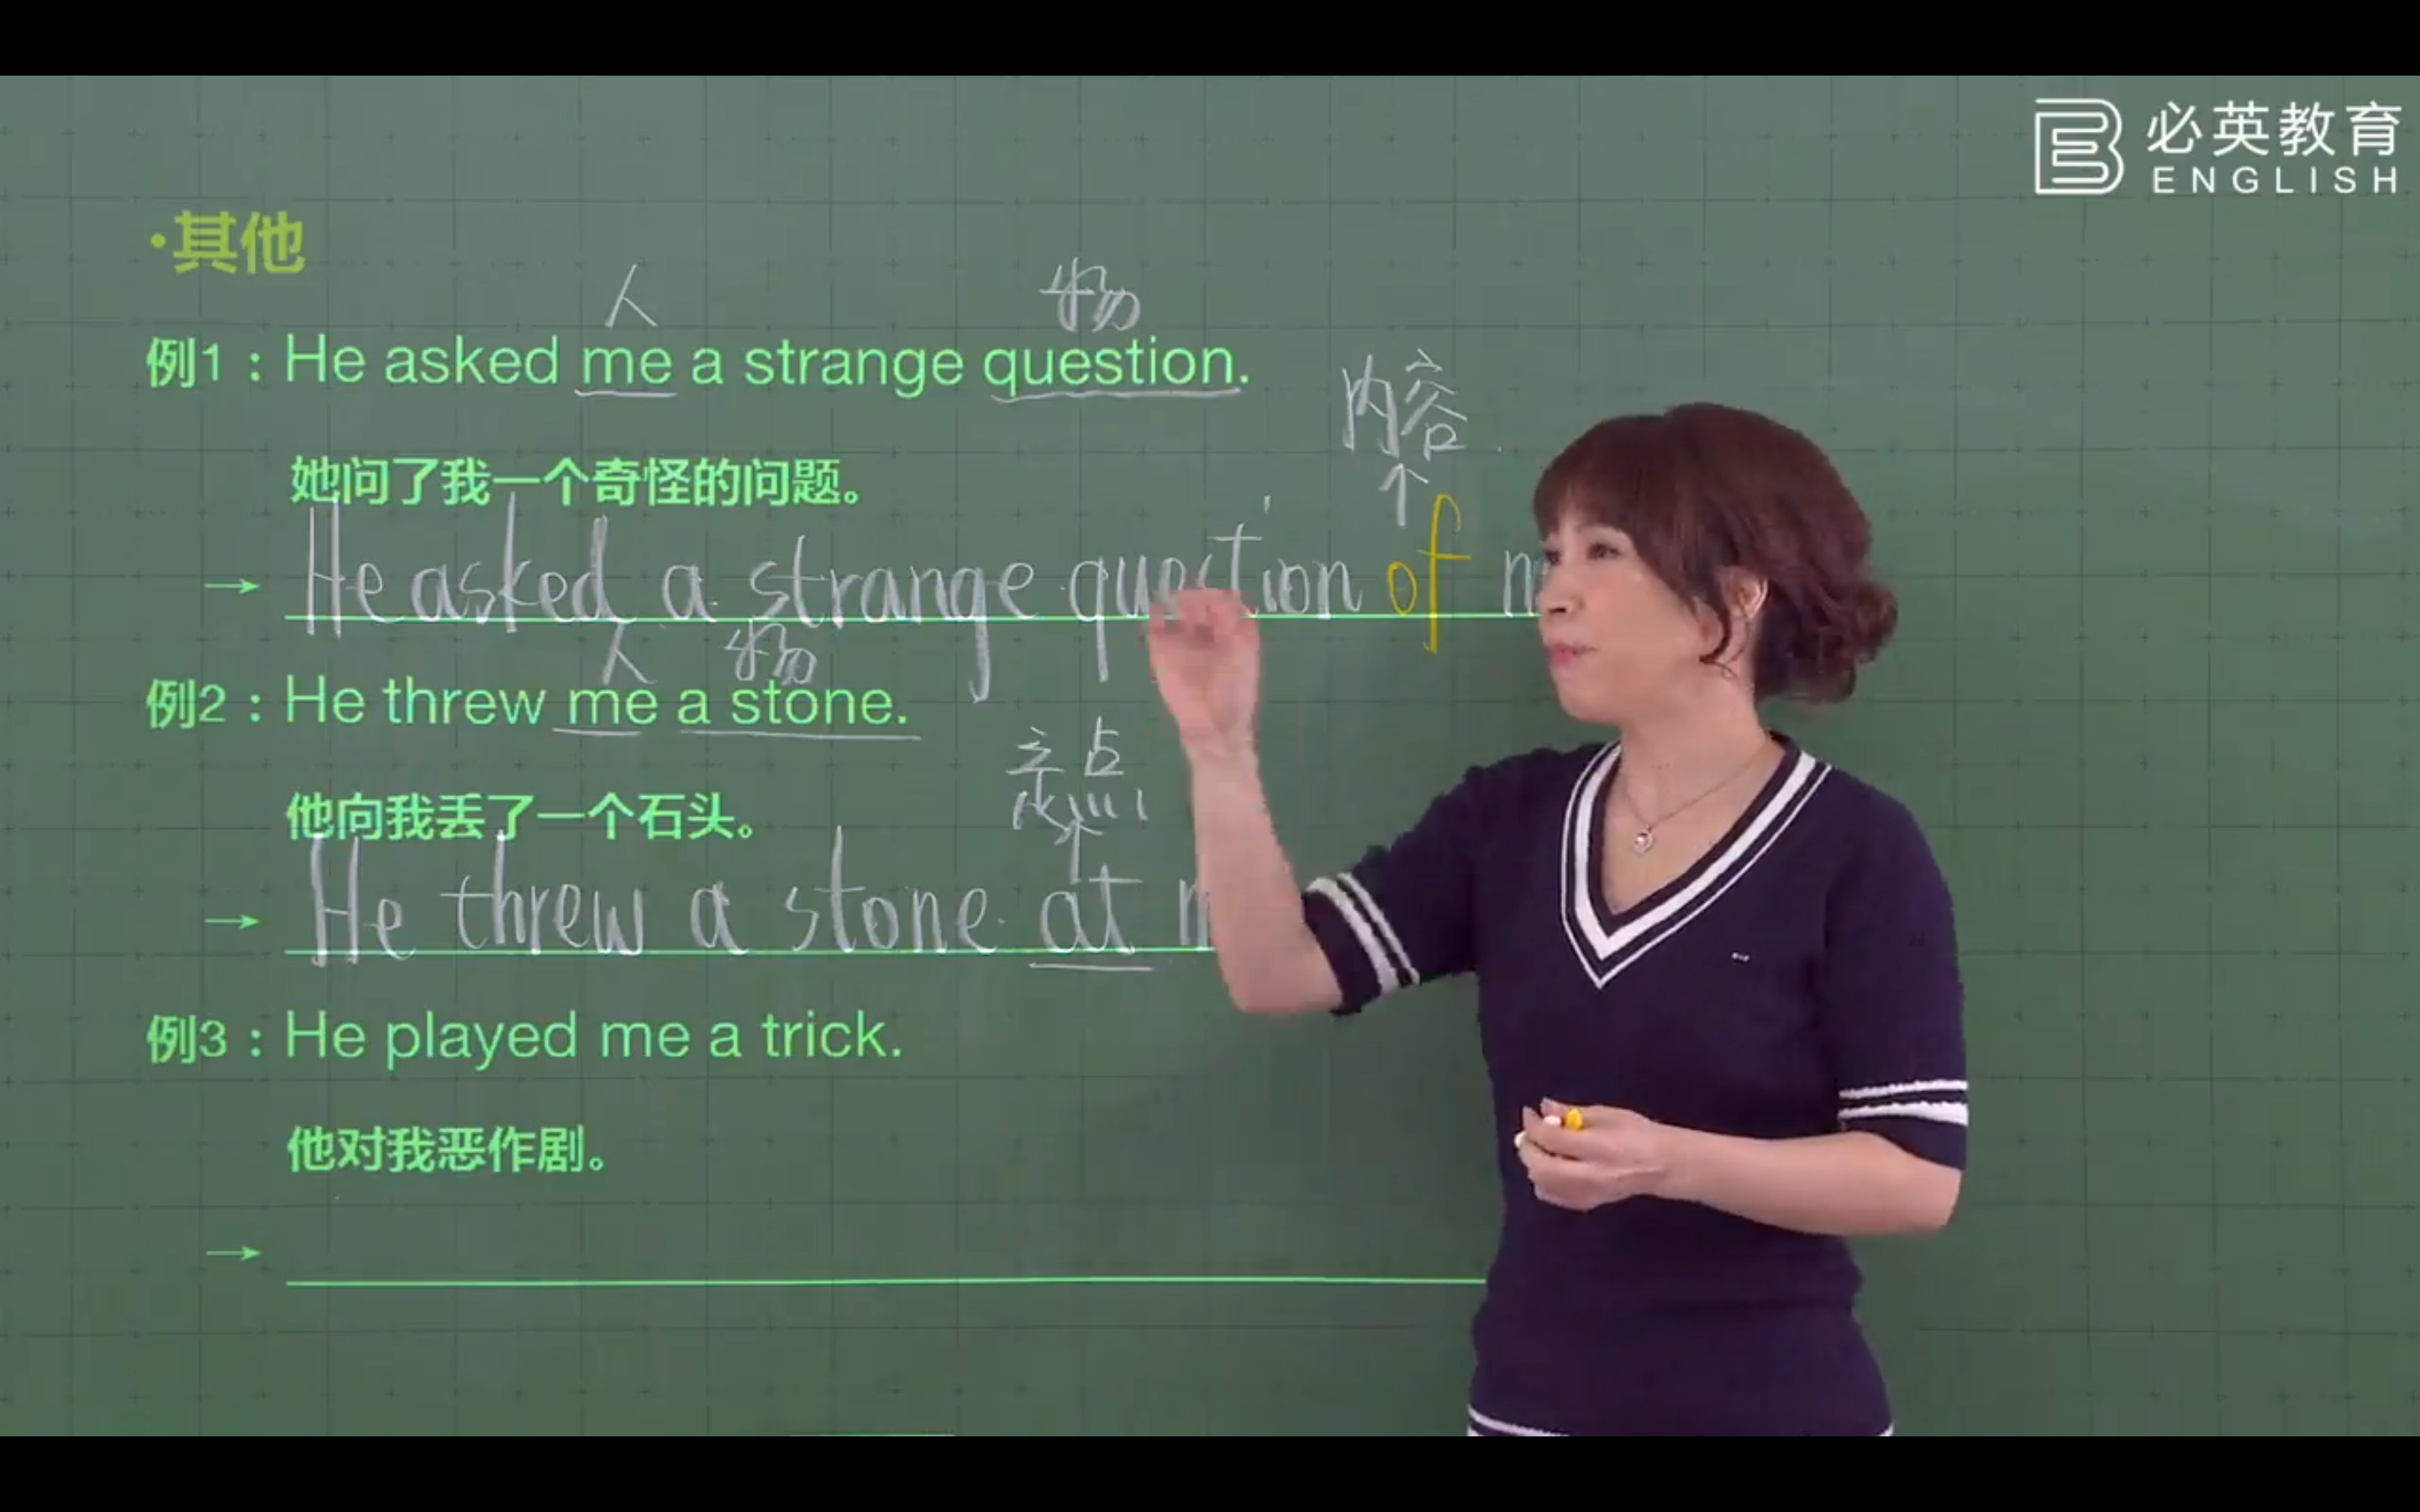 必英教育
ENGLISH
·其他
人 物
例1：He asked me a strange question.
内容
她问了我一个奇怪的问题。
↑
→ He asked a strange question of
人 物
例2：He threw me a stone.
点
他向我丢了一个石头。
↑
→ He threw a stone at
例3：He played me a trick.
他对我恶作剧。
→